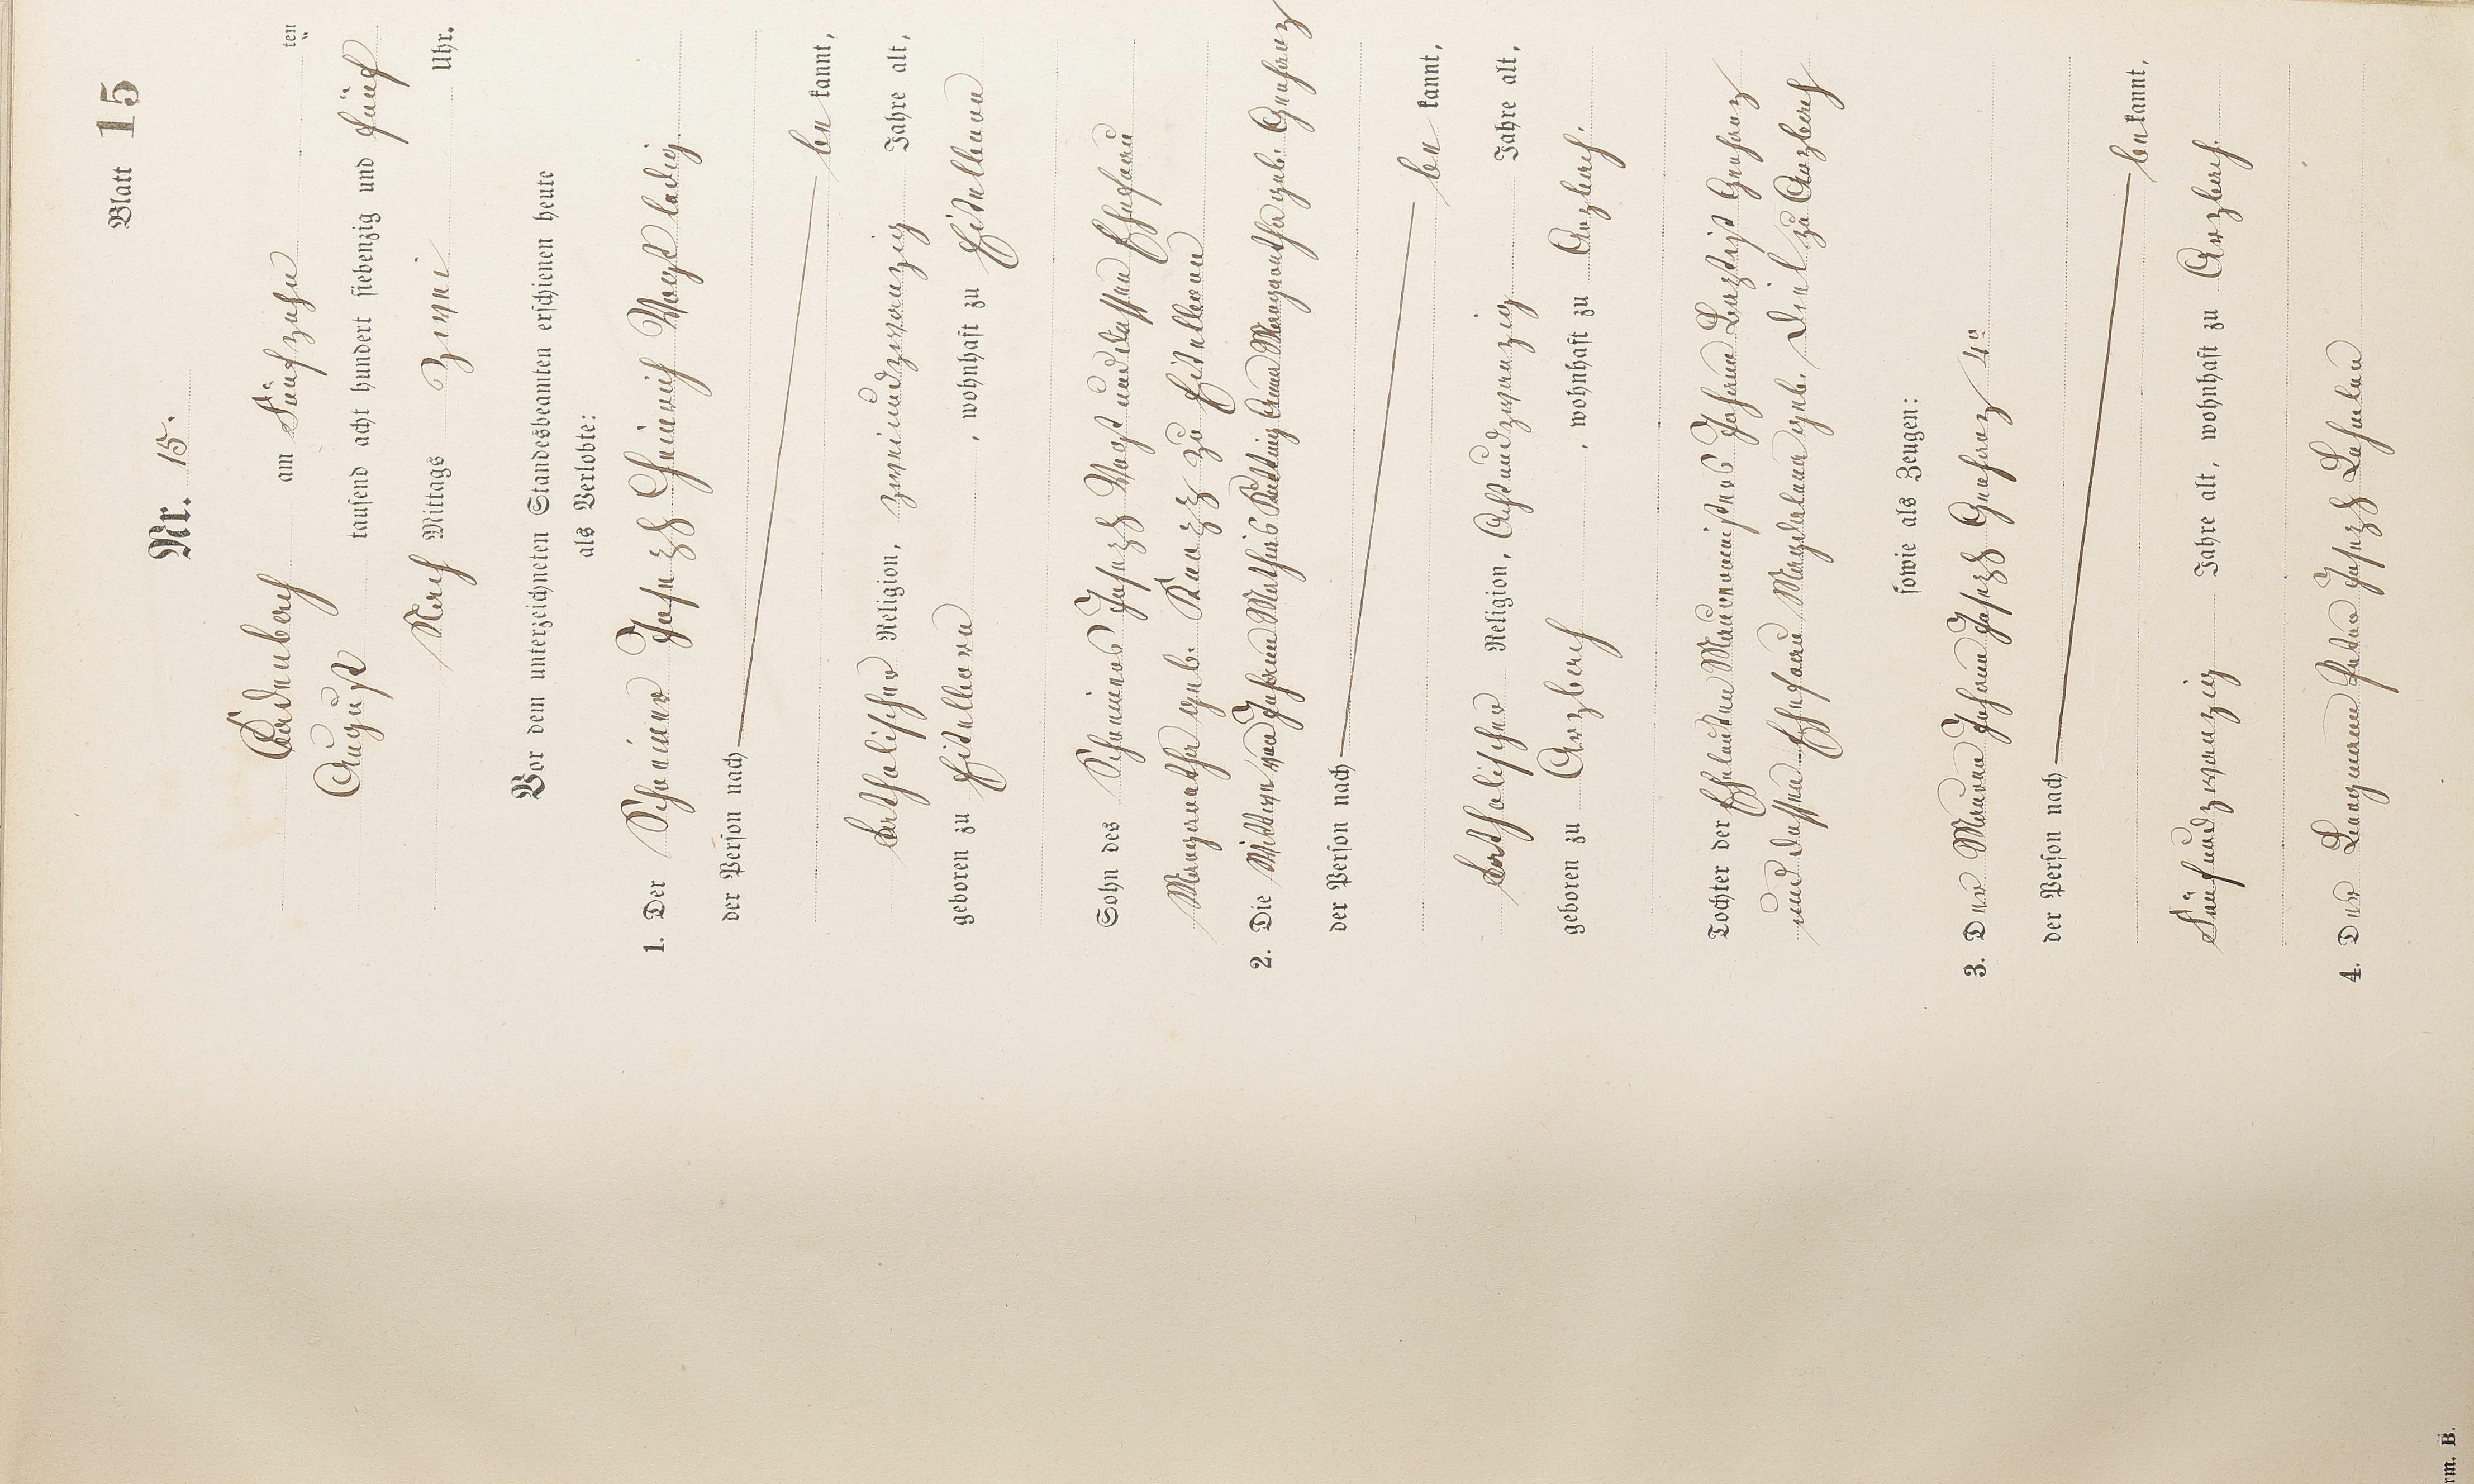 Blatt 15
Nr. 15.
Kadenbach am Fünfzehn ten
August tausend acht hundert siebenzig und fünf
Nach Mittags Zwei Uhr.
Vor dem unterzeichneten Standesbeamten erschienen heute
als Verlobte:
1. Der Schreiner Joseph Heinrich Vogt ledig
der Person nach
be kannt,
katholischer Religion, zweiundzwanzig Jahre alt,
geboren zu Eitelborn, wohnhaft zu Eitelborn
Sohn des Schreiners Joseph Vogt und dessen Ehefrau
Margaretha geb. Knopp zu Eitelborn
2. Die Wittwe von Johann Mathias Anna Margaretha geb. Gerharz
der Person nach
be kannt,
katholischer Religion, Achtundzwanzig Jahre alt,
geboren zu Arzbach, wohnhaft zu Arzbach.
Tochter der Eheleuten Maurermeisters Johann Baptist Gerharz
und dessen Ehefrau Magdalena geb. Diel zu Arzbach
sowie als Zeugen:
3. Der Maurer Johann Joseph Gerharz 4r
der Person nach
be kannt,
Fünfundzwanzig Jahre alt, wohnhaft zu Arzbach.
4. Der Bergmann Peter Joseph
rm. B.